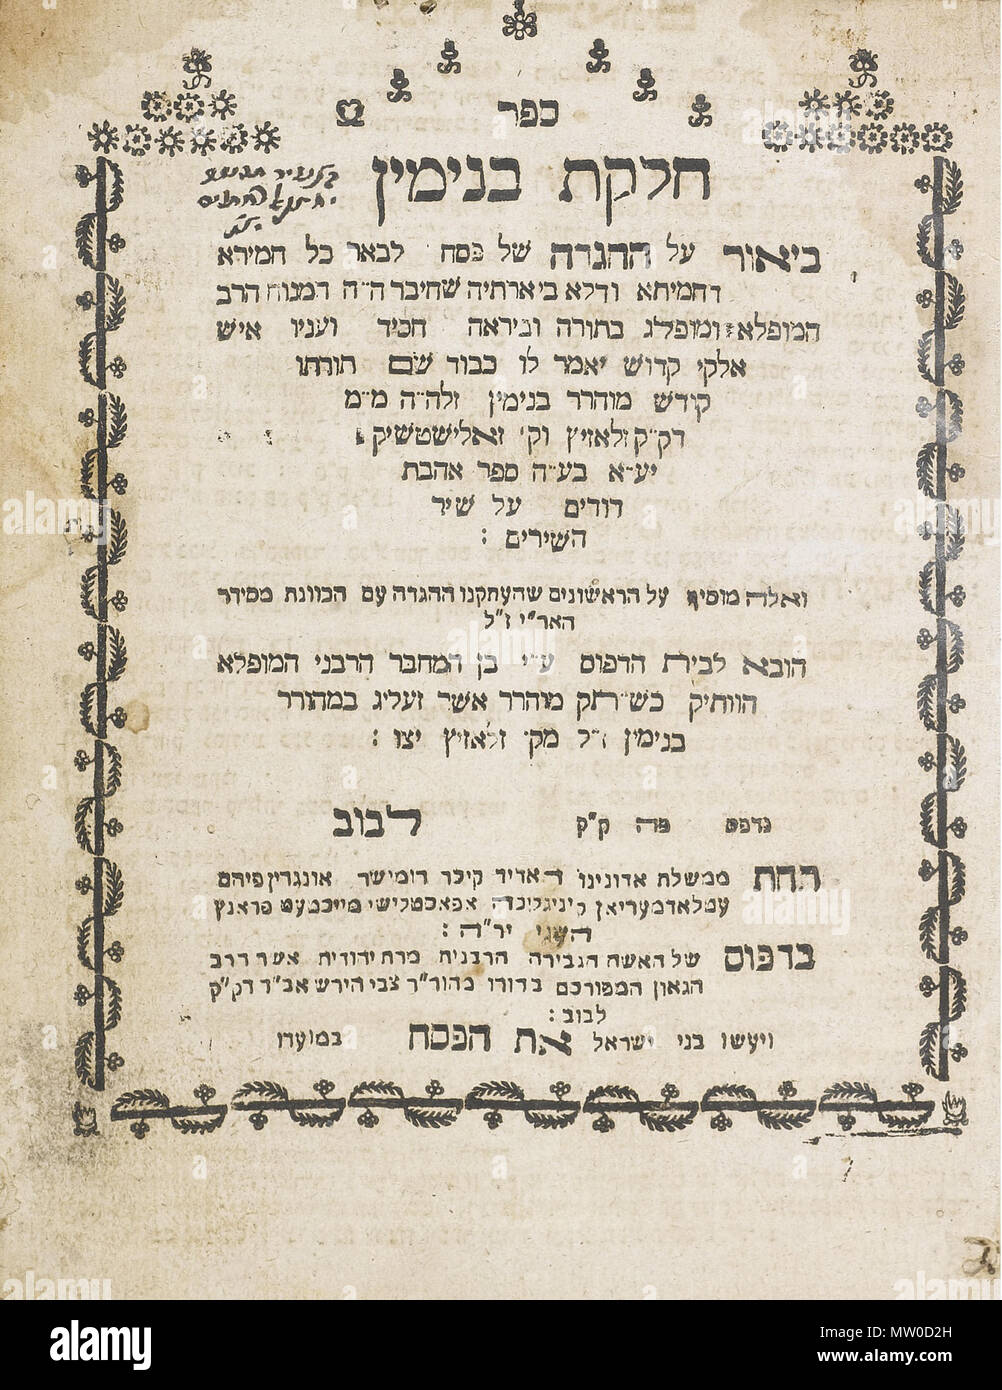 ספר
חלקת בנימין
ביאור על ההגדה של פסח לבאר כל חמירא
דחמיתא ודלא ביארתיה שחיבר ה״ה המנוח הרב
המופלא ומופלג בתורה וביראה חסיד ועניו איש
אלקי קדוש יאמר לו כבוד שם תורתו
קודש מוהרר בנימין זלה״ה מ״מ
דק״ק זלאזיץ וק׳ זאלישטשיק
יע״א בע״ה ספר אהבת
דודים על שיר
השירים :
ואלה מוסיף על הראשונים שהעתקנו ההגדה עם הכוונת מסידר
האר״י ז״ל
הובא לבית הדפוס ע״י בן המחבר הרבני המופלא
הוותיק כש״ת מוהרר אשר זעליג במהורר
בנימין ז״ל מק״ זלאזיץ יצו :
נדפס פה ק״ק לבוב
תחת ממשלת אדונינו האדיר קיסר רומישר אונגרין פיהם
קיניגליכה אפאסטלישי מייסטעט פראנץ
השני יר״ה :
בדפוס של האשה הגבירה הרבנית מרת יהודית אשר הרב
הגאון המפורסם בדורו מהור״ר צבי הירש אב״ד דק״ק
לבוב :
ויעשו בני ישראל את הפסח במועדו
alamy
Image ID: MW0D2H
www.alamy.com